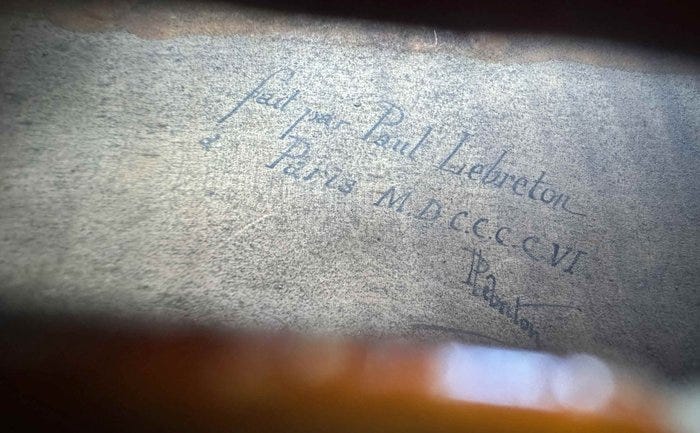 fait par Paul Lebreton
à Paris M.D.C.C.C.C.VI
PLebreton